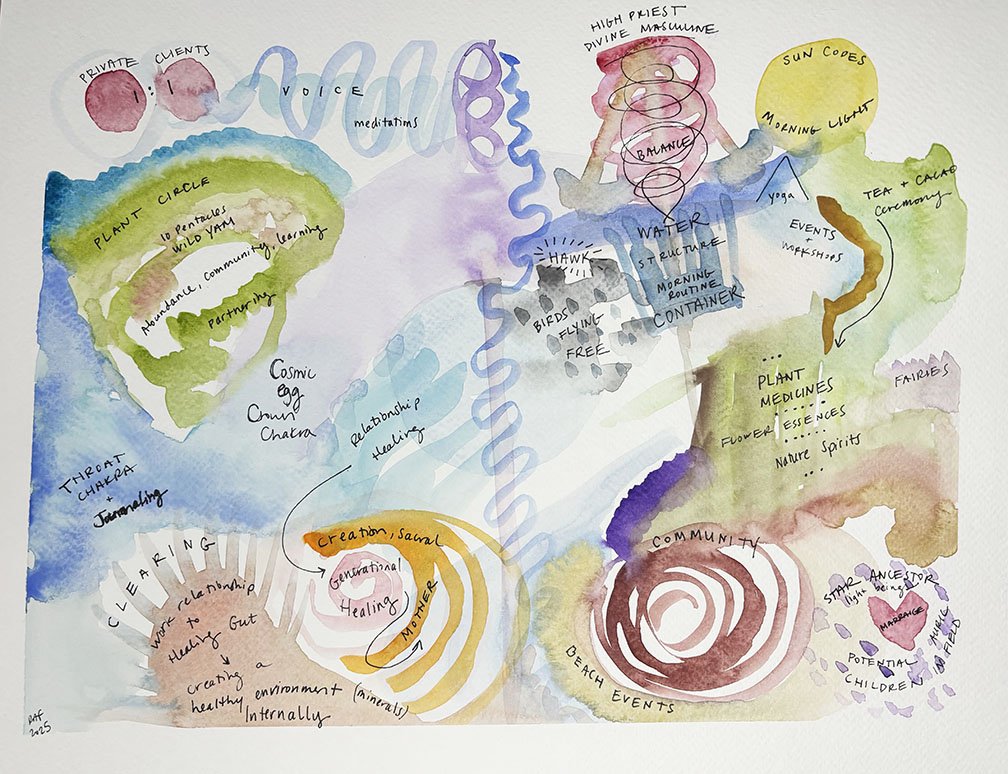 PRIVATE CLIENTS
1:1
VOICE
meditations
HIGH PRIEST
DIVINE MASCULINE
BALANCE
SUN CODES
MORNING LIGHT
PLANT CIRCLE
10 Pentacles
WILD YAM
Abundance, community, learning
Partnering
Cosmic
egg
Crown
Chakra
THROAT
CHAKRA
+
Journaling
Relationship
Healing
HAWK
BIRDS
FLYING
FREE
WATER
STRUCTURE
MORNING
ROUTINE
CONTAINER
yoga
EVENTS
+
WORKSHOPS
TEA + CACAO
Ceremony
PLANT
MEDICINES
FLOWER ESSENCES
Nature Spirits
FAIRIES
CLEARING
work relationship
to
Healing Gut
creating a
healthy environment (minerals)
Internally
Creation, Sacral
Generational
Healing
MOTHER
COMMUNITY
BEACH EVENTS
STAR ANCESTOR
light beings
MARRAIGE
AURIC
FIELD
POTENTIAL
CHILDREN
RAF
2025